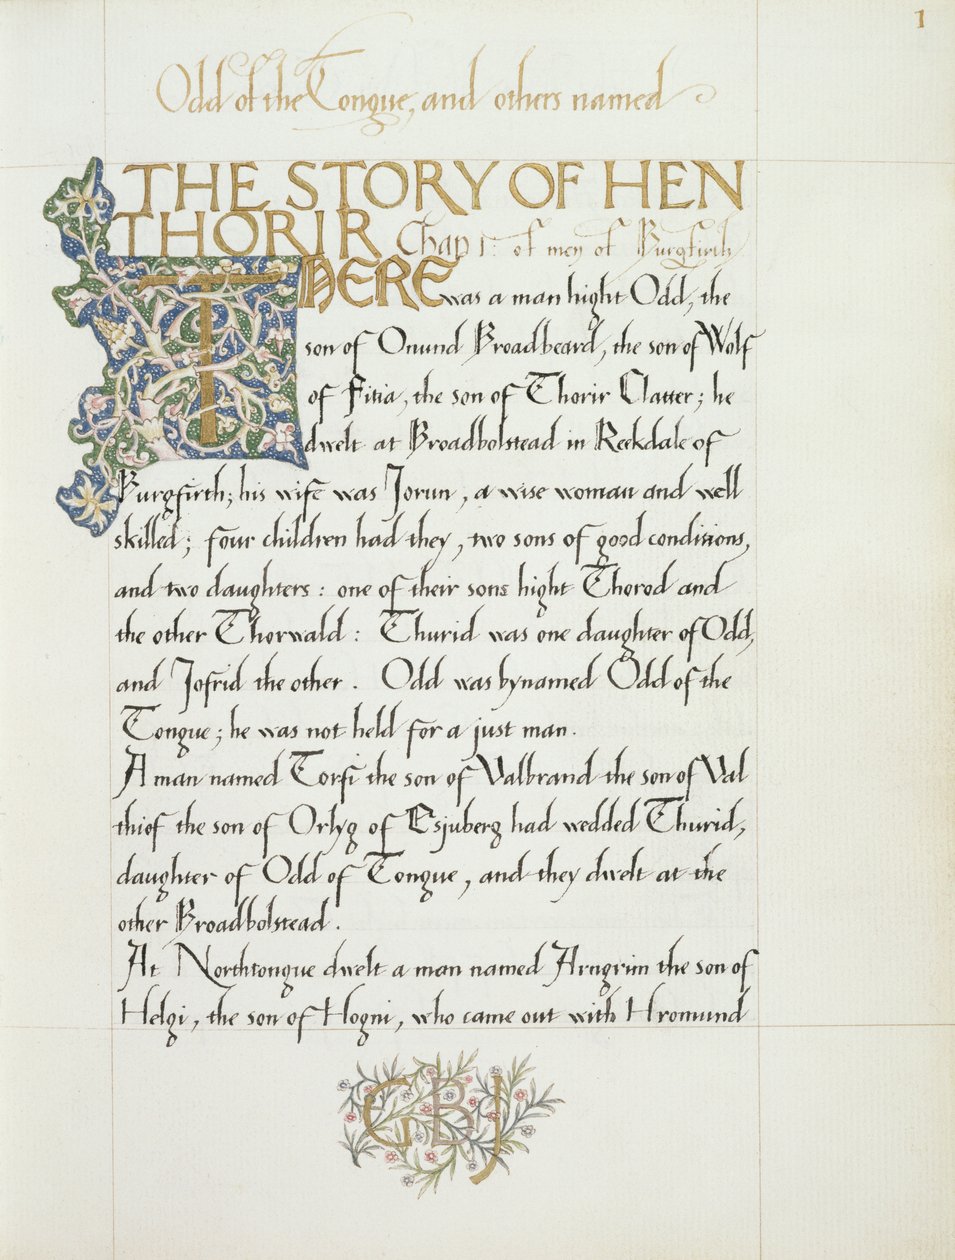 1
Odd of the Tongue, and others named
THE STORY OF HEN
THORIR Chap 1: of men of Burgfirth
THERE was a man hight Odd, the
son of Onund Broadbeard, the son of Wolf
of Fitia, the son of Thorir Clatter; he
dwelt at Broadbolstead in Reekdale of
Burgfirth; his wife was Jorun, a wise woman and well
skilled; four children had they, two sons of good conditions,
and two daughters: one of their sons hight Thorod and
the other Thorwald: Thurid was one daughter of Odd,
and Jofrid the other. Odd was bynamed Odd of the
Tongue; he was not held for a just man.
A man named Torfi the son of Valbrand the son of Val
thiof the son of Orlyg of Esjuberg had wedded Thurid,
daughter of Odd of Tongue, and they dwelt at the
other Broadbolstead.
At Northtongue dwelt a man named Arngrim the son of
Helgi, the son of Hogni, who came out with Hromund
GBJ